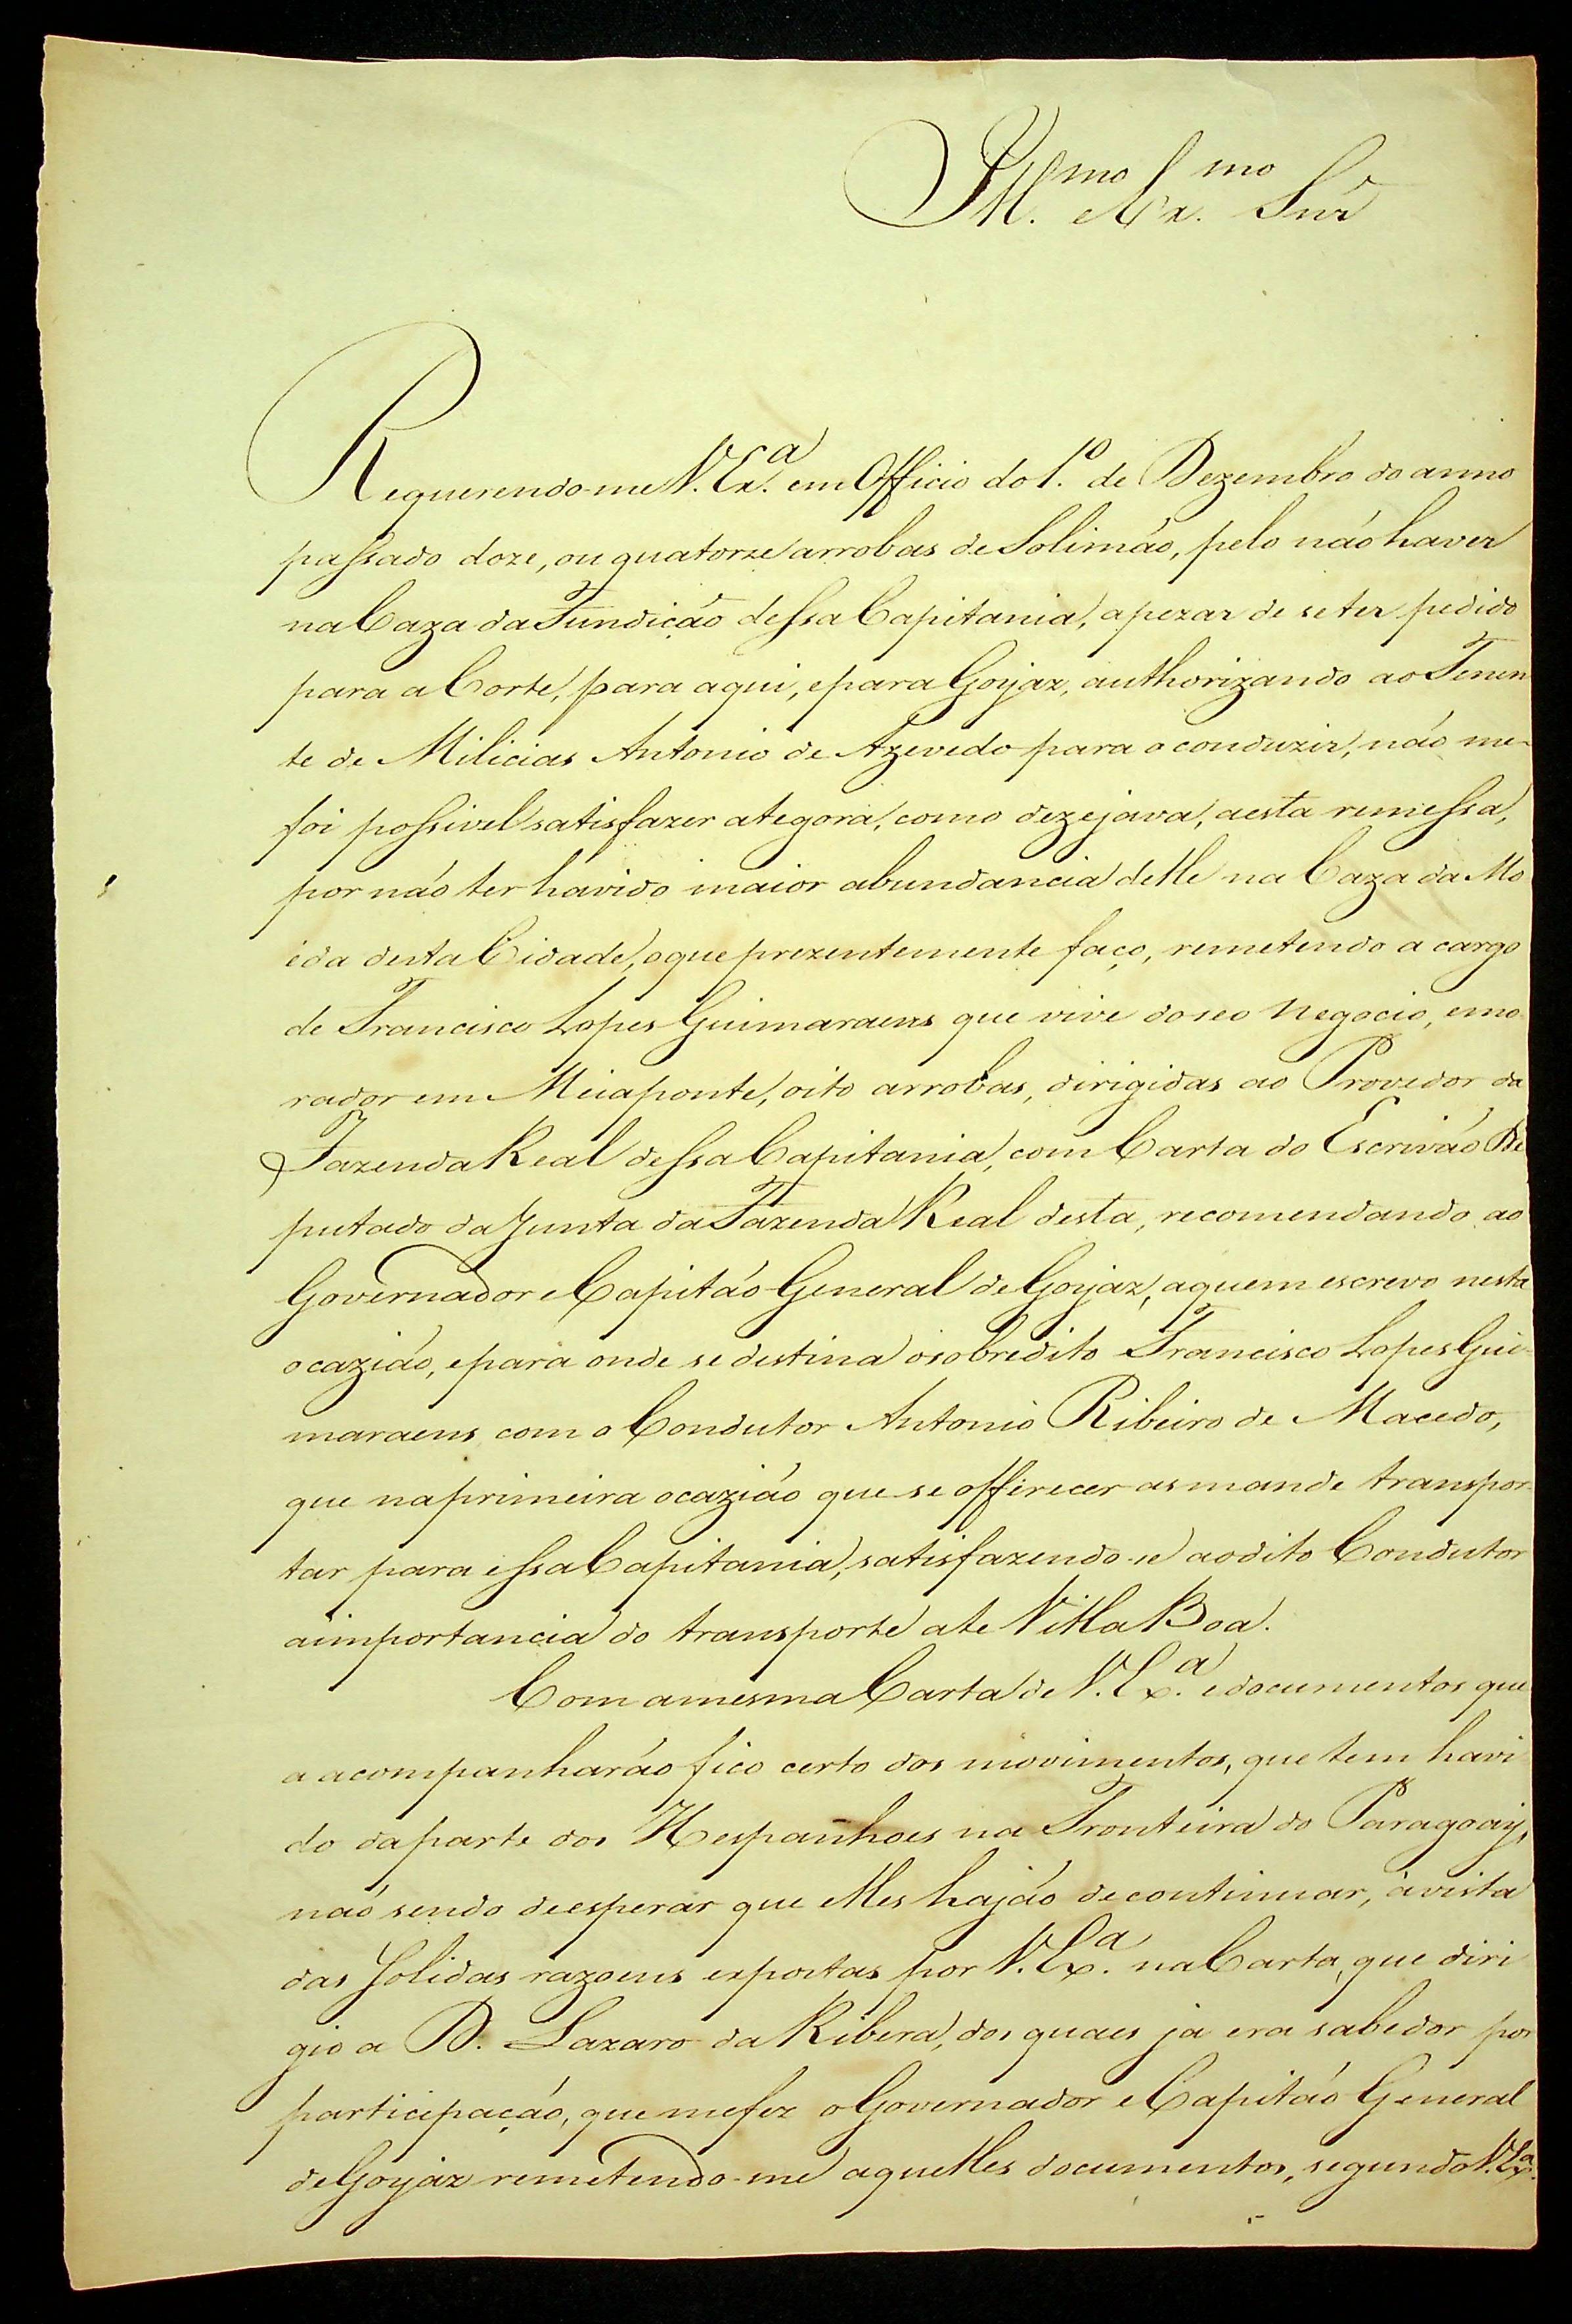 Ill.mo e Ex.mo Snr
Requerendo-me V. Ex.a em Officio do 1.º de Dezembro do anno
passado doze, ou quatorze arrobas de Solimáo, pelo náo haver
na Caza da Fundiçáo dessa Capitania, apezar de se ter pedido
para a Corte, para aqui, e para Goyaz, authorizando ao Tenen
te de Milicias Antonio de Azevedo para o conduzir, náo me
foi possivel satisfazer ategora, como dezejava, a esta remessa,
por náo ter havido maior abundancia delle na Caza da Mo
eda desta Cidade, o que prezentemente faço, remetendo a cargo
de Francisco Lopes Guimaraens que vive do seo Negocio, e mo
rador em Meiaponte, oito arrobas, dirigidas ao Provedor da
Fazenda Real dessa Capitania, com Carta do Escriváo De
putado da Junta da Fazenda Real desta, recomendando ao
Governador e Capitáo General de Goyaz, a quem escrevo nesta
ocaziáo, e para onde se destina o sobredito Francisco Lopes Gui-
maraens com o Condutor Antonio Ribeiro de Macedo,
que na primeira ocaziáo que se offerecer as mande transpor-
tar para essa Capitania, satisfazendo-se ao dito Condutor
a importancia do transporte ate Villa Boa.
Com a mesma Carta de V. Ex.a e documentos que
a acompanharáo fico certo dos movimentos, que tem havi
do da parte dos Hespanhoes na Fronteira do Paragoay,
náo sendo de esperar que elles hajáo de continuar, á vista
das Solidas razoens expostas por V. Ex.a na Carta, que diri
gio a D. Lazaro da Ribera, dos quaes ja era sabedor por
participaçáo, que me fez o Governador e Capitáo General
de Goyaz remetendo-me aquelles documentos, segundo V. Ex.a